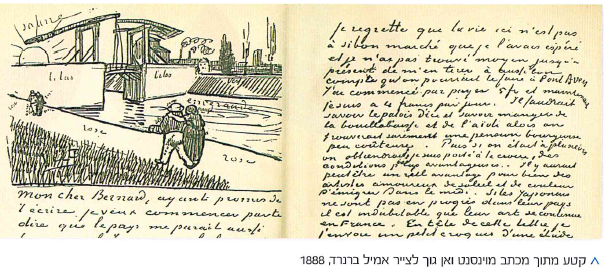 lilas
lilas
rose
rose
mon cher Bernard, ayant promis de
t'écrire je veux commencer par te
dire que le pays me parait aussi
Je regrette que la vie ici n'est pas
à si bon marché que je l'avais espéré
et je n'ai pas trouvé moyen jusqu'à
présent de m'en tirer à aussi bon
compte qu'on pourrait le faire à Pont Aven
J'ai commencé par payer 5 fr et maintenant
je suis à 4 francs par jour. Il faudrait
savoir le patois d'ici et savoir manger de
la bouillabaisse et de l'aïoli alors on
trouverait surement une pension bourgeoise
peu coûteuse. Puis si on était à plusieurs
on obtiendrait je suis porté à le croire, des
conditions plus avantageuses. Il y aurait
peut être un réel avantage pour bien des
artistes amoureux de soleil et de couleur
d'émigrer dans le midi. Si les Japonais
ne sont pas en progrès dans leur pays
il est indubitable que leur art se continue
en France. En tête de cette lettre je
t'envoie un petit croquis d'une étude
קטע מתוך מכתב מוינסנט ואן גוך לצייר אמיל ברנרד, 1888